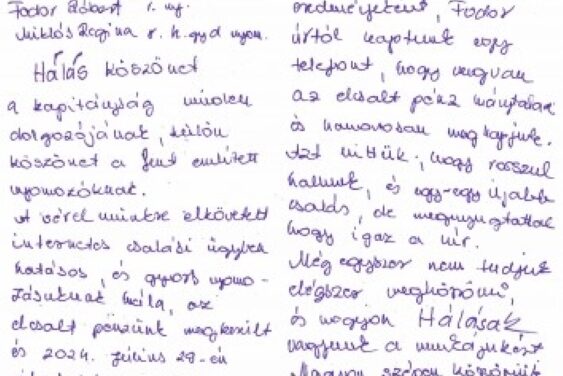 Fodor Róbert r. ny.
Miklós Regina r. h. gyd nyom.
Hálás köszönet
a kapitányság minden
dolgozójának, külön
köszönet a fent említett
nyomozóknak.
A vérel minkre elkövetett
internetes csalási ügyben
hatásos, és gyors nyomo-
zásuknak hála, az
elcsalt pénzünk megkerült
és 2024. Július 29-én
eredményeként, Fodor
úrtól kaptunk egy
telefont, hogy megvan
az elcsalt pénz
és hamarosan megkapjuk.
Azt hittük, hogy rosszul
hallunk, és egy-egy újabb
csalás, de megnyugtattak
hogy igaz a hír.
Még egyszer nem tudjuk
elégszer megköszönni,
és nagyon Hálásak
vagyunk a munkájukért
Nagyon szépen köszönjük